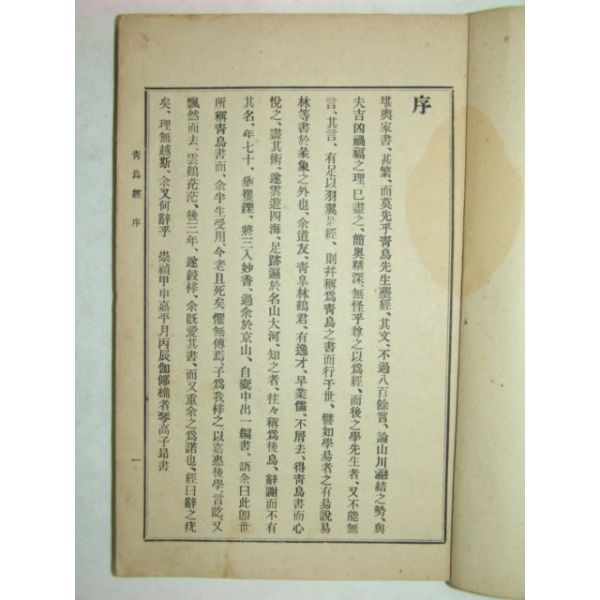 序
堪輿家書、甚繁、而莫先乎靑烏先生葬經、其文、不過八百餘言、論山川融結之勢、與
夫吉凶禍福之理、已盡之、簡奧精深、無怪乎尊之以爲經、而後之學先生者、又不能無
言、其言、有足以羽翼是經、則幷稱爲靑烏之書而行于世、譬如學易者之有易說易
林等書於彖象之外也、余道友、靑皐林鶴君、有逸才、早業儒、不屑去、得靑烏書而心
悅之、盡其術、遂雲遊四海、足跡遍於名山大河、知之者、往々稱爲後烏、辭謝而不有
其名、年七十、矍鑠、將三入妙香、過余於京山、自槖中出一編書、語余曰此卽世
所稱靑烏書而、余半生受用、今老且死矣、懼無傳焉、子爲我梓之、以嘉惠後學、言訖、又
飄然而去、雲鶴茫茫、後三年、遂鋟梓、余旣愛其書、而又重余之爲諾也、經曰辭之疣
矣、理無越斯、余又何辭乎 崇禎甲申嘉平月丙辰伽倻樵者琴高子昻書
靑烏經 序
一